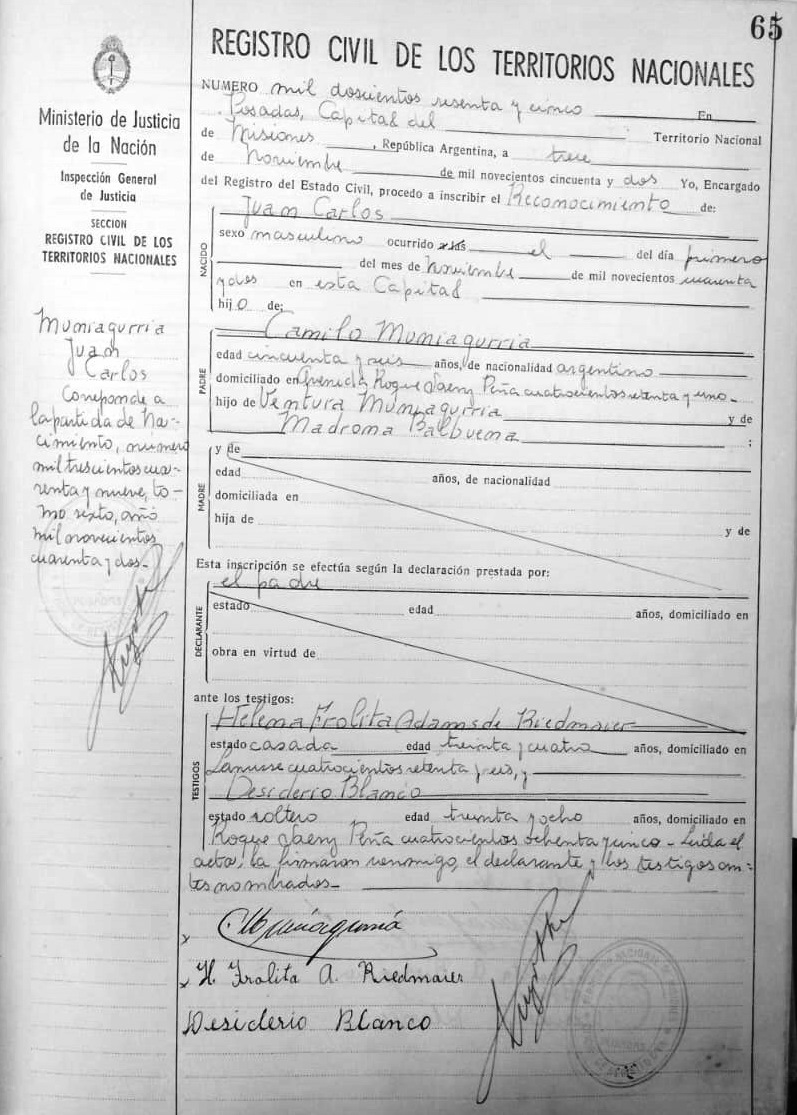 65
REGISTRO CIVIL DE LOS TERRITORIOS NACIONALES
Ministerio de Justicia
de la Nación
Inspección General
de Justicia
SECCION
REGISTRO CIVIL DE LOS
TERRITORIOS NACIONALES
Muniagurria
Juan
Carlos
Corresponde a
la partida de Na-
cimiento, número
mil trescientos cua-
renta y nueve, to-
mo sexto, año
mil novecientos
cuarenta y dos-
NUMERO mil doscientos sesenta y cinco En
Posadas, Capital del Territorio Nacional
de Misiones, República Argentina, a trece
de Noviembre de mil novecientos cincuenta y dos Yo, Encargado
del Registro del Estado Civil, procedo a inscribir el Reconocimiento de:
Juan Carlos
NACIDO
sexo masculino ocurrido a las el del día primero
del mes de Noviembre de mil novecientos cuarenta
y dos en esta Capital
hijo de:
Camilo Muniagurria
PADRE
edad cincuenta y seis años, de nacionalidad argentino
domiciliado en Avenida Roque Saenz Peña cuatrocientos setenta y uno-
hijo de Ventura Muniagurria y de
Madroma Balbuena ;
MADRE
y de
edad años, de nacionalidad
domiciliada en
hija de y de
Esta inscripción se efectúa según la declaración prestada por:
el padre
DECLARANTE
estado edad años, domiciliado en
obra en virtud de
ante los testigos:
TESTIGOS
Helena Frolita Adams de Riedmaier
estado casada edad treinta y cuatro años, domiciliado en
Lanusse cuatrocientos setenta y seis, y
Desiderio Blanco
estado soltero edad treinta y ocho años, domiciliado en
Roque Saenz Peña cuatrocientos ochenta y cinco - Leída el
acta, la firmaron conmigo, el declarante y los testigos an-
tes nombrados-
H. Frolita A. Riedmaier
Desiderio Blanco